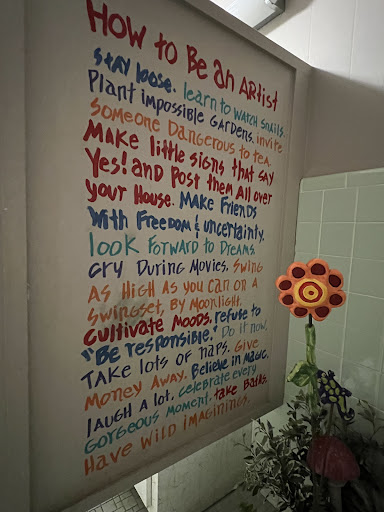 How to Be an Artist
Stay loose. learn to watch snails.
Plant impossible Gardens. invite
someone Dangerous to tea.
Make little signs that say
Yes! and Post them All over
your House. Make Friends
With Freedom & uncertainty.
look Forward to Dreams.
Cry During Movies. Swing
As High as you can on a
Swingset, By Moonlight.
Cultivate Moods. refuse to
"Be responsible." Do it now,
Take lots of naps. Give
Money Away. Believe in Magic.
laugh A lot. celebrate every
Gorgeous Moment. take Baths.
Have wild imaginings.